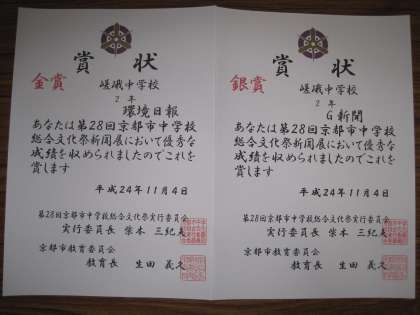 賞状
金賞
嵯峨中学校
2年
環境日報
あなたは第28回京都市中学校
総合文化祭新聞展において優秀な
成績を収められましたのでこれを
賞します
平成24年11月4日
第28回京都市中学校総合文化祭実行委員会
実行委員長 柴本 三紀夫
京都市教育委員会
教育長 生田 義久
賞状
銀賞
嵯峨中学校
2年
G新聞
あなたは第28回京都市中学校
総合文化祭新聞展において優秀な
成績を収められましたのでこれを
賞します
平成24年11月4日
第28回京都市中学校総合文化祭実行委員会
実行委員長 柴本 三紀夫
京都市教育委員会
教育長 生田 義久